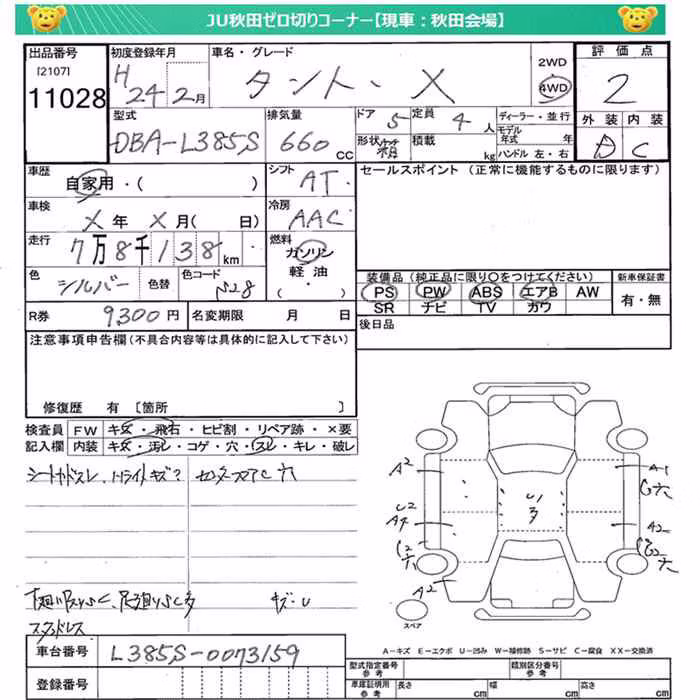 JU秋田ゼロ切りコーナー【現車：秋田会場】
出品番号 初度登録年月 車名・グレード 2WD 評価点
[2107] 11028 H 24年 2月 タント・X 4WD 2
型式 排気量 ドア 5 定員 4人 ディーラー・並行 外装 内装
DBA-L385S 660cc 形状 積載 kg モデル年式 年 ハンドル 左・右 D C
車歴 自家用・( ) シフト AT セールスポイント (正常に機能するものに限ります)
車検 X年 X月( 日) 冷房 AAC
走行 7万8千138km 燃料 ガソリン 軽油 ・( )
色 シルバー 色替 色コード S28
装備品(純正品に限り○をつけてください) 新車保証書
PS PW ABS エアB AW 有・無
SR ナビ TV カワ
R券 9300円 名変期限 月 日 後日品
注意事項申告欄(不具合内容等は具体的に記入して下さい)
修復歴 有 [箇所 ]
検査員 FW キズ・飛石・ヒビ割・リペア跡・×要
記入欄 内装 キズ・汚レ・コゲ・穴・スレ・キレ・破レ
A2 A1
G六
U2 A2
C2 六
A2
スペア
スタッドレス キズ・U
A－キズ E－エクボ U－凹み W－補修跡 S－サビ C－腐食 XX－交換済
車台番号 L385S-0073159
登録番号
型式指定番号 参考 類別区分番号 参考
車庫証明用 参考 長さ cm 幅 cm 高さ cm